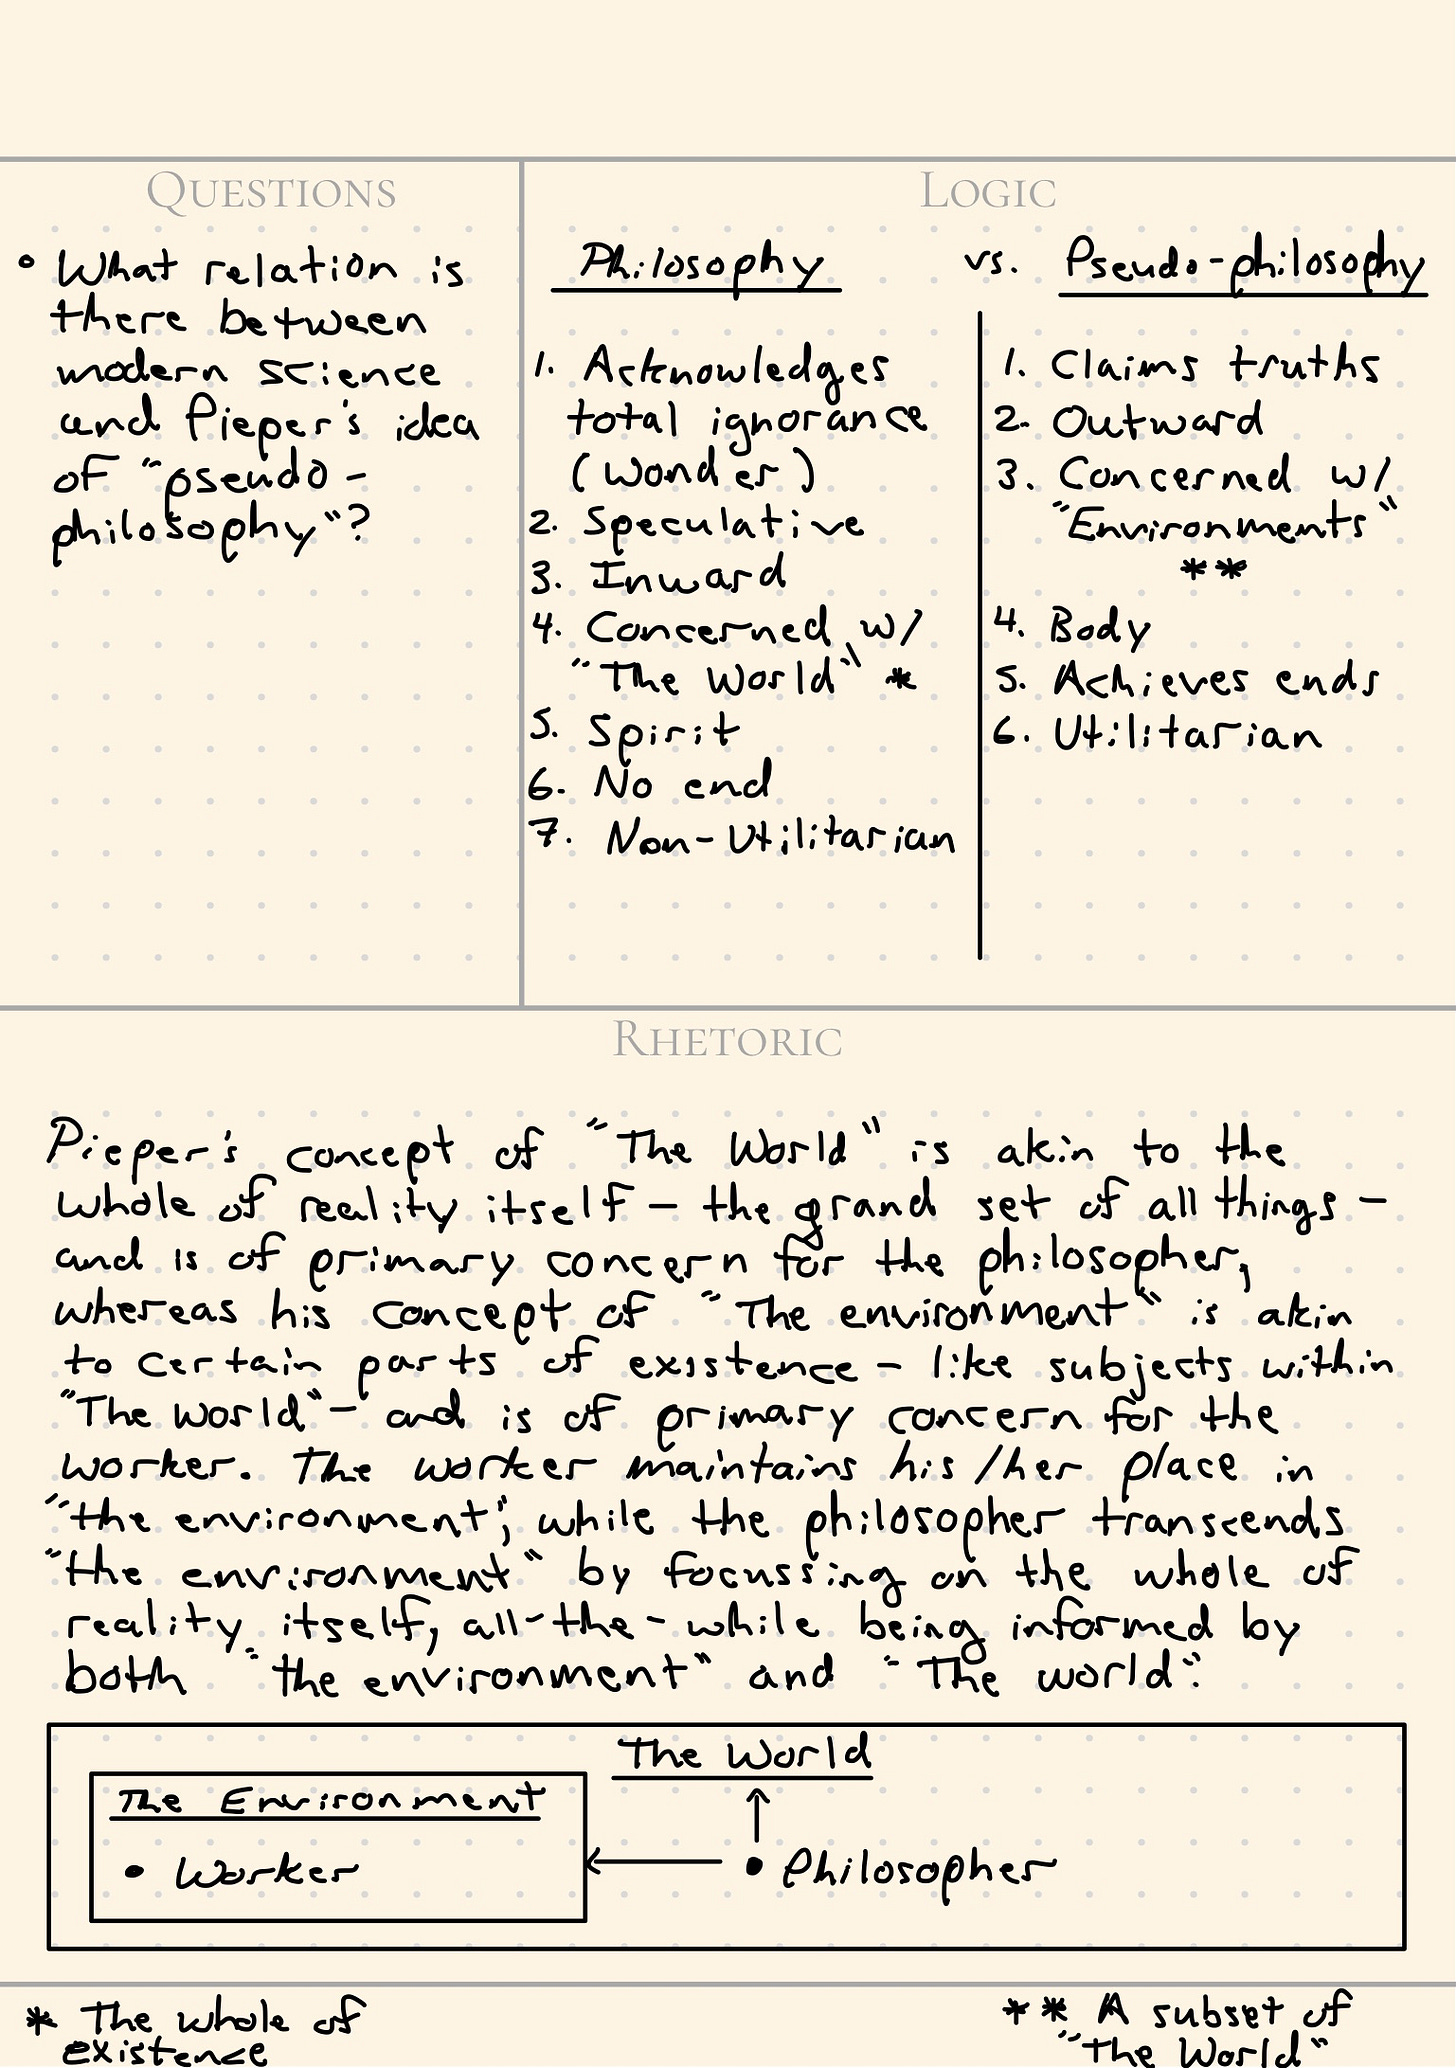 QUESTIONS
• What relation is
there between
modern science
and Pieper's idea
of "pseudo-
philosophy"?
LOGIC
Philosophy vs. Pseudo-philosophy
1. Acknowledges
total ignorance
(wonder)
2. Speculative
3. Inward
4. Concerned w/
"The World" *
5. Spirit
6. No end
7. Non-Utilitarian
1. Claims truths
2. Outward
3. Concerned w/
"Environments"
**
4. Body
5. Achieves ends
6. Utilitarian
RHETORIC
Pieper's concept of "The World" is akin to the
whole of reality itself – the grand set of all things –
and is of primary concern for the philosopher,
whereas his concept of "The environment" is akin
to certain parts of existence – like subjects within
"The World" – and is of primary concern for the
worker. The worker maintains his/her place in
"the environment", while the philosopher transcends
"the environment" by focussing on the whole of
reality itself, all-the-while being informed by
both "the environment" and "The world".
The World
The Environment
• Worker
• Philosopher
* The whole of
existence
** A subset of
"The World"